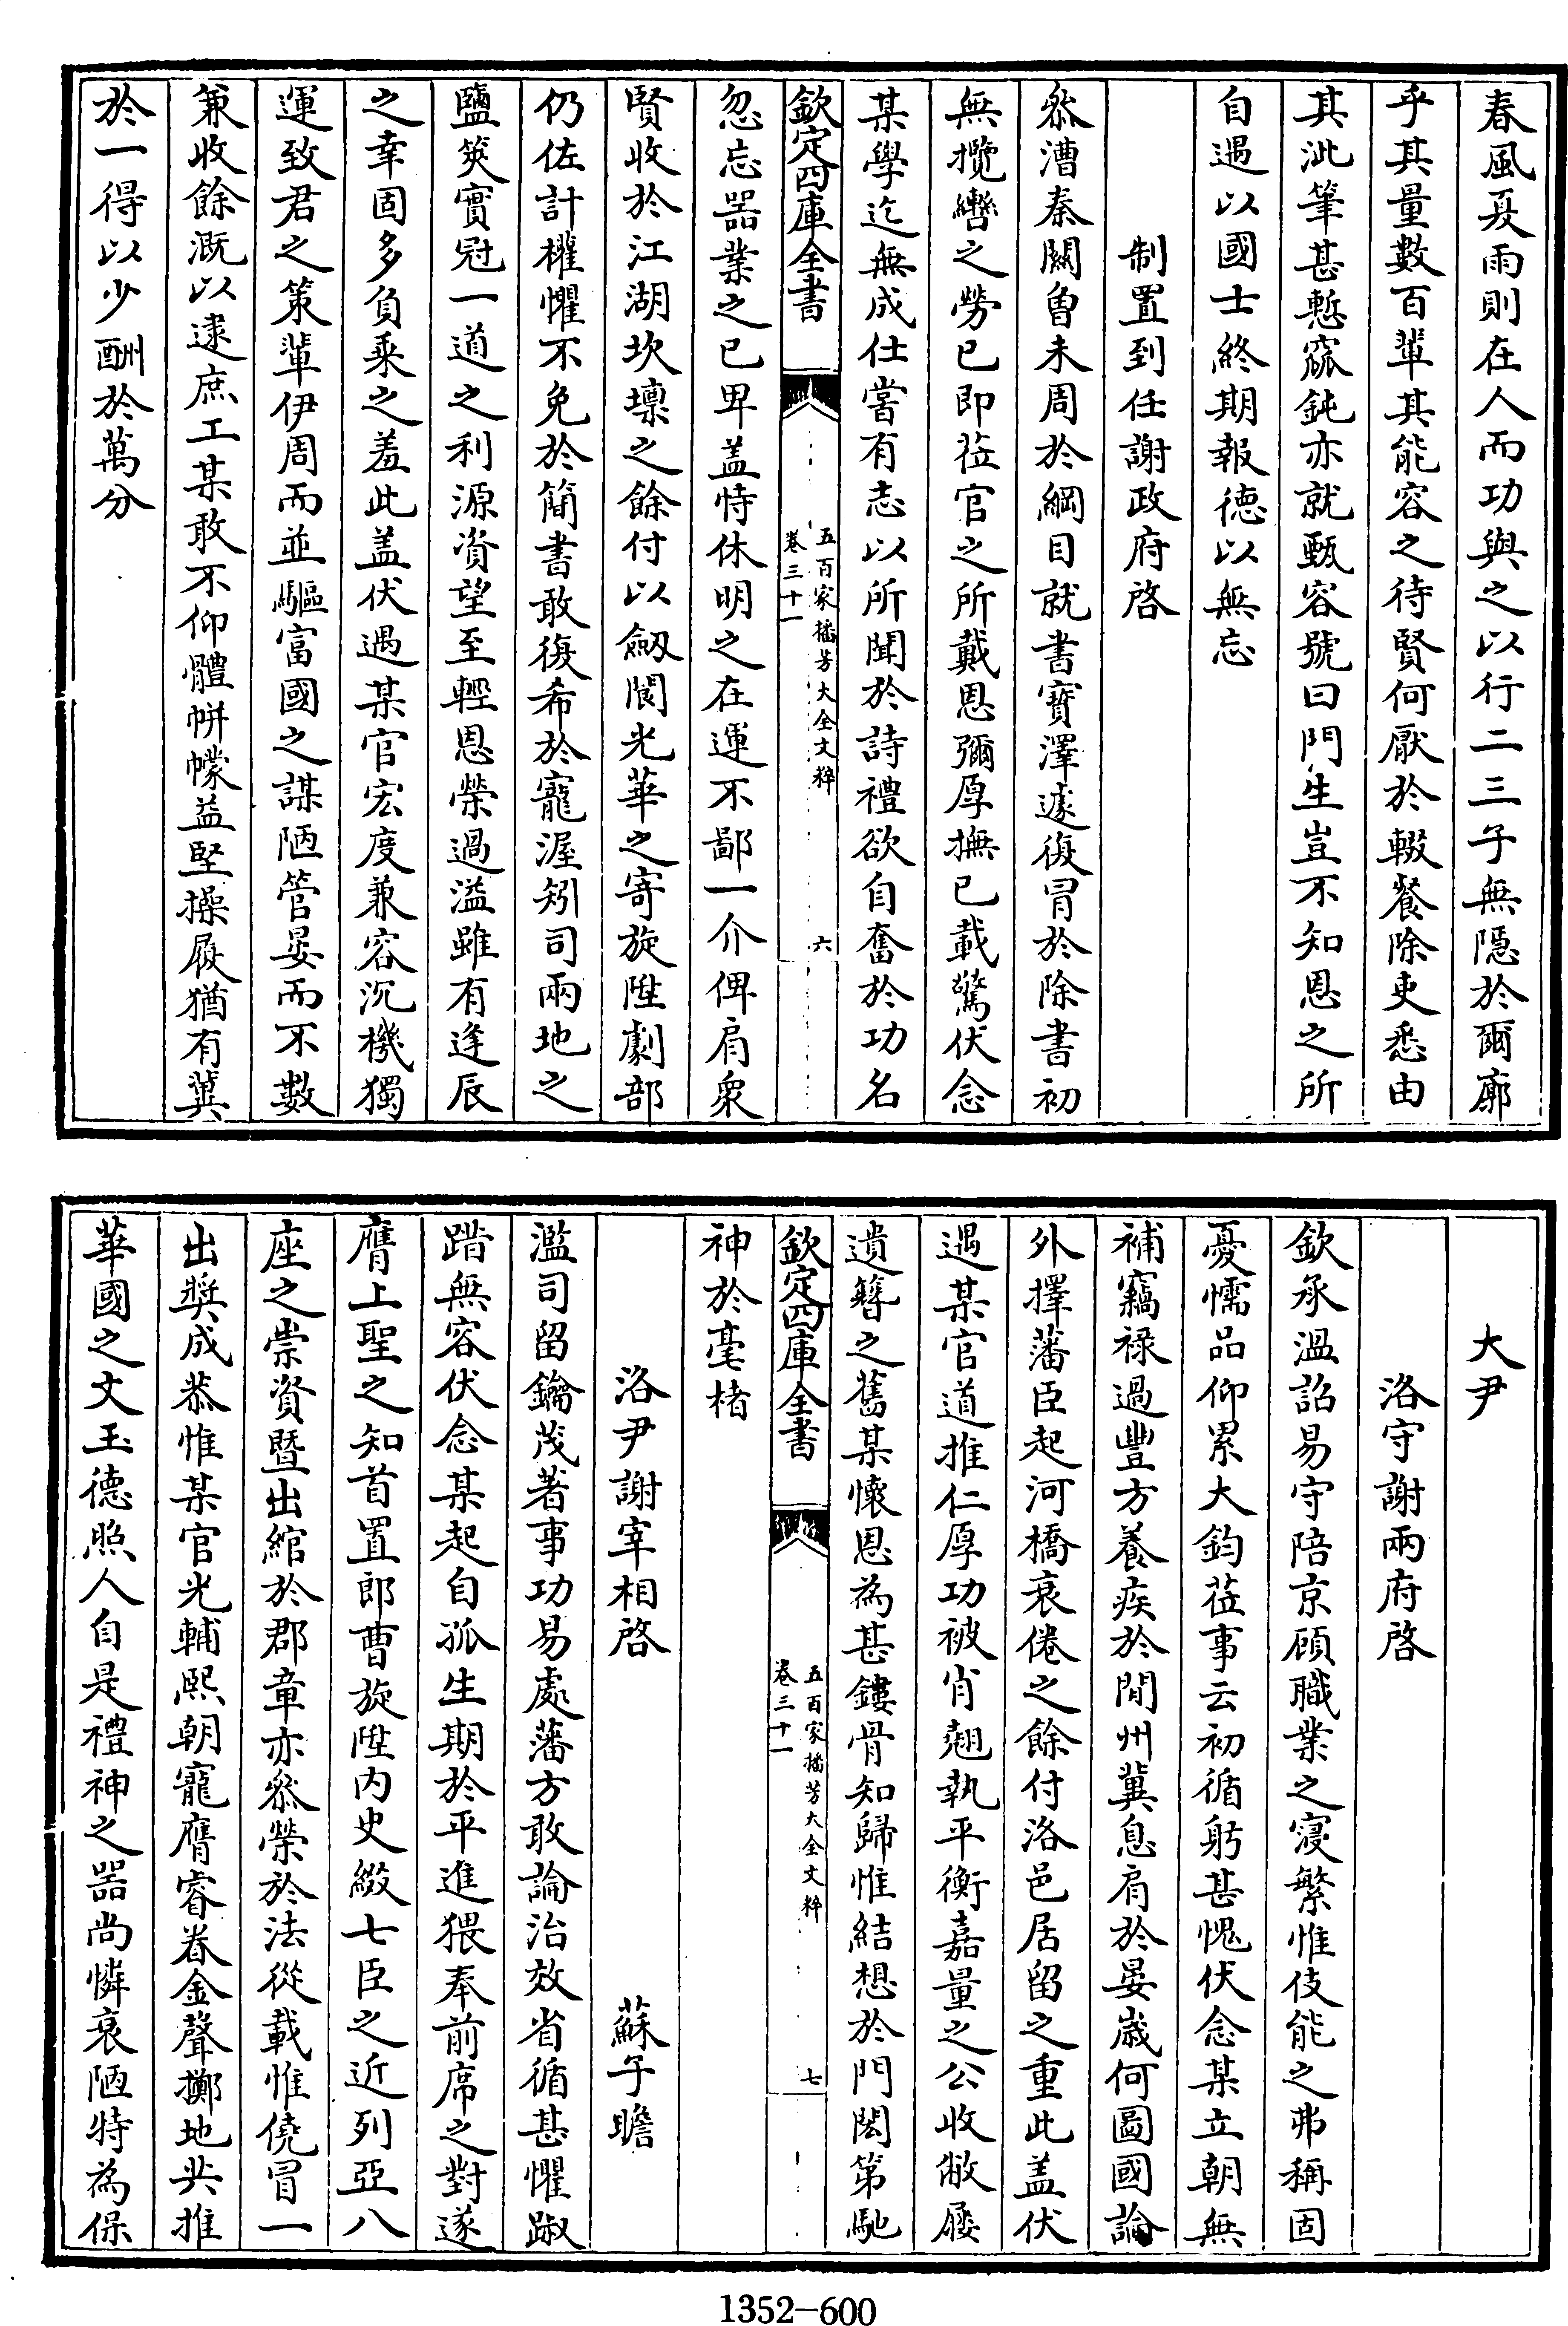 春風夏雨則在人而功與之以行二三子無隱於爾廓
乎其量數百輩其能容之待賢何厭於輟餐除吏悉由
其泚筆甚慙窳鈍亦就甄容號曰門生豈不知恩之所
自遇以國士終期報德以無忘
制置到任謝政府啓
叅漕秦關曾未周於綱目就書寶澤遽復冒於除書初
無攬轡之勞已即莅官之所戴恩彌厚撫已載驚伏念
某學迄無成仕嘗有志以所聞於詩禮欲自奮於功名
欽定四庫全書
五百家播芳大全文粹
卷三十一
六
忽忘器業之已卑盖恃休明之在運不鄙一介俾肩衆
賢收於江湖坎壈之餘付以劒閬光華之寄旋陞劇部
仍佐計權懼不免於簡書敢復希於寵渥矧司兩地之
鹽筴實冠一道之利源資望至輕恩榮過溢雖有逢辰
之幸固多負乘之羞此盖伏遇某官宏度兼容沉機獨
運致君之策輩伊周而並驅富國之謀陋管晏而不數
兼收餘溉以逮庶工某敢不仰體帡幪益堅操履猶有冀
於一得以少酬於萬分
大尹
洛守謝兩府啓
欽承溫詔易守陪京顧職業之寖繁惟伎能之弗稱固
憂懦品仰累大鈞莅事云初循躬甚愧伏念某立朝無
補竊祿過豐方養疾於閒州冀息肩於晏歲何圖國論
外擇藩臣起河橋衰倦之餘付洛邑居留之重此盖伏
遇某官道推仁厚功被肖翹執平衡嘉量之公收敝屨
遺簪之舊某懷恩為甚鏤骨知歸惟結想於門閎第馳
欽定四庫全書
五百家播芳大全文粹
卷三十一
七
神於毫楮
洛尹謝宰相啓 蘇子瞻
濫司留鑰茂著事功易處藩方敢論治效省循甚懼踧
踖無容伏念某起自孤生期於平進猥奉前席之對遂
膺上聖之知首置郎曹旋陞内史綴七臣之近列亞八
座之崇資暨出綰於郡章亦叅榮於法從載惟僥冒一
出奬成恭惟某官光輔熙朝寵膺睿眷金聲擲地共推
華國之文玉德照人自是禮神之器尚憐衰陋特為保
1352-600